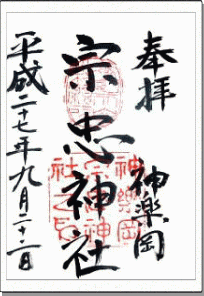 奉拝
神楽岡
宗忠神社
平成二十七年九月二十二日
神樂岡
宗忠神
社之印